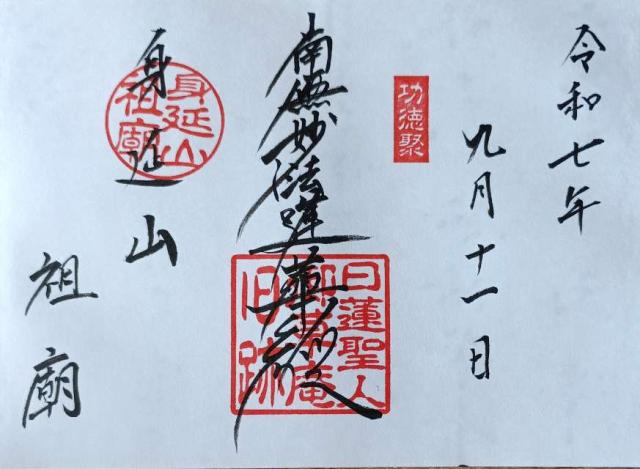 令和七年
九月十一日
功徳聚
南無妙法蓮華経
日蓮聖人
御草庵
旧跡
身延山
祖廟
身延山
祖廟